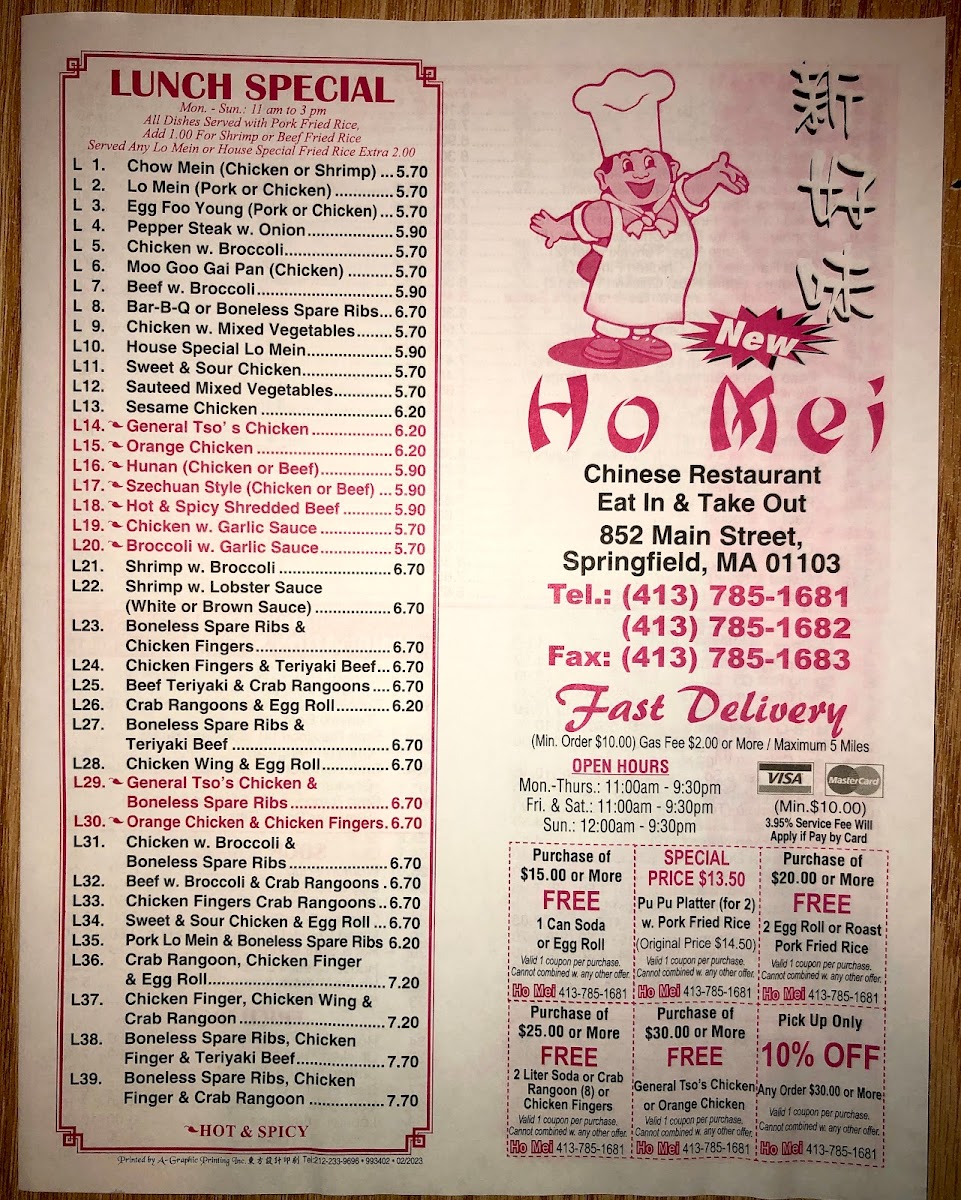 LUNCH SPECIAL
Mon. - Sun.: 11 am to 3 pm
All Dishes Served with Pork Fried Rice,
Add 1.00 For Shrimp or Beef Fried Rice
Served Any Lo Mein or House Special Fried Rice Extra 2.00
L 1. Chow Mein (Chicken or Shrimp) ... 5.70
L 2. Lo Mein (Pork or Chicken) ............ 5.70
L 3. Egg Foo Young (Pork or Chicken) ... 5.70
L 4. Pepper Steak w. Onion .................. 5.90
L 5. Chicken w. Broccoli....................... 5.70
L 6. Moo Goo Gai Pan (Chicken) .......... 5.70
L 7. Beef w. Broccoli ............................ 5.90
L 8. Bar-B-Q or Boneless Spare Ribs... 6.70
L 9. Chicken w. Mixed Vegetables....... 5.70
L10. House Special Lo Mein.................. 5.90
L11. Sweet & Sour Chicken................... 5.70
L12. Sauteed Mixed Vegetables............ 5.70
L13. Sesame Chicken ........................... 6.20
L14. General Tso' s Chicken ................. 6.20
L15. Orange Chicken ............................ 6.20
L16. Hunan (Chicken or Beef)............... 5.90
L17. Szechuan Style (Chicken or Beef) ... 5.90
L18. Hot & Spicy Shredded Beef .......... 5.90
L19. Chicken w. Garlic Sauce ............... 5.70
L20. Broccoli w. Garlic Sauce............... 5.70
L21. Shrimp w. Broccoli ........................ 6.70
L22. Shrimp w. Lobster Sauce
(White or Brown Sauce) ................ 6.70
L23. Boneless Spare Ribs &
Chicken Fingers............................ 6.70
L24. Chicken Fingers & Teriyaki Beef... 6.70
L25. Beef Teriyaki & Crab Rangoons .... 6.70
L26. Crab Rangoons & Egg Roll............ 6.20
L27. Boneless Spare Ribs &
Teriyaki Beef ................................ 6.70
L28. Chicken Wing & Egg Roll.............. 6.70
L29. General Tso's Chicken &
Boneless Spare Ribs .................... 6.70
L30. Orange Chicken & Chicken Fingers. 6.70
L31. Chicken w. Broccoli &
Boneless Spare Ribs .................... 6.70
L32. Beef w. Broccoli & Crab Rangoons . 6.70
L33. Chicken Fingers Crab Rangoons .. 6.70
L34. Sweet & Sour Chicken & Egg Roll ... 6.70
L35. Pork Lo Mein & Boneless Spare Ribs 6.20
L36. Crab Rangoon, Chicken Finger
& Egg Roll.................................... 7.20
L37. Chicken Finger, Chicken Wing &
Crab Rangoon .............................. 7.20
L38. Boneless Spare Ribs, Chicken
Finger & Teriyaki Beef.................. 7.70
L39. Boneless Spare Ribs, Chicken
Finger & Crab Rangoon ............... 7.70
HOT & SPICY
Printed by A-Graphic Printing Inc. 東方設計印刷 Tel:212-233-9696 • 993402 • 02/2023
New
Ho Mei
Chinese Restaurant
Eat In & Take Out
852 Main Street,
Springfield, MA 01103
Tel.: (413) 785-1681
(413) 785-1682
Fax: (413) 785-1683
Fast Delivery
(Min. Order $10.00) Gas Fee $2.00 or More / Maximum 5 Miles
OPEN HOURS
Mon.-Thurs.: 11:00am - 9:30pm
Fri. & Sat.: 11:00am - 9:30pm
Sun.: 12:00am - 9:30pm
VISA MasterCard
(Min.$10.00)
3.95% Service Fee Will
Apply if Pay by Card
Purchase of
$15.00 or More
FREE
1 Can Soda
or Egg Roll
Valid 1 coupon per purchase.
Cannot combined w. any other offer.
Ho Mei 413-785-1681
SPECIAL
PRICE $13.50
Pu Pu Platter (for 2)
w. Pork Fried Rice
(Original Price $14.50)
Valid 1 coupon per purchase.
Cannot combined w. any other offer.
Ho Mei 413-785-1681
Purchase of
$20.00 or More
FREE
2 Egg Roll or Roast
Pork Fried Rice
Valid 1 coupon per purchase.
Cannot combined w. any other offer.
Ho Mei 413-785-1681
Purchase of
$25.00 or More
FREE
2 Liter Soda or Crab
Rangoon (8) or
Chicken Fingers
Valid 1 coupon per purchase.
Cannot combined w. any other offer.
Ho Mei 413-785-1681
Purchase of
$30.00 or More
FREE
General Tso's Chicken
or Orange Chicken
Valid 1 coupon per purchase.
Cannot combined w. any other offer.
Ho Mei 413-785-1681
Pick Up Only
10% OFF
Any Order $30.00 or More
Valid 1 coupon per purchase.
Cannot combined w. any other offer.
Ho Mei 413-785-1681